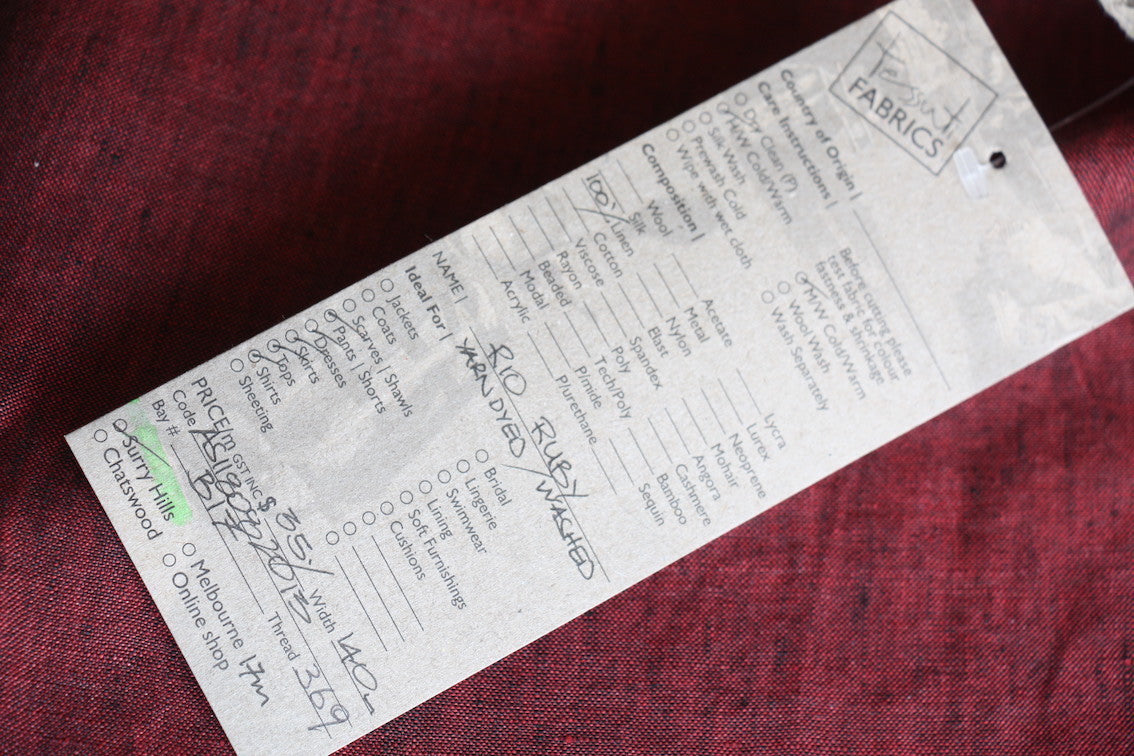 Tessuti
FABRICS
Country of Origin |
Care Instructions |
Dry Clean (P)
M/W Cold/Warm
Silk Wash
Prewash Cold
Wipe with wet cloth
Before cutting please
test fabric for colour
fastness & shrinkage
M/W Cold/Warm
Wool Wash
Wash Separately
Composition |
Wool
Silk
100% Linen
Cotton
Viscose
Rayon
Beaded
Modal
Acrylic
Acetate
Metal
Nylon
Blast
Spandex
Poly
Tech/Poly
P/mide
P/urethane
Lycra
Lurex
Neoprene
Mohair
Angora
Cashmere
Bamboo
Sequin
NAME | RIO RUBY
YARN DYED / WASHED
Ideal For |
Jackets
Coats
Scarves | Shawls
Pants | Shorts
Dresses
Skirts
Tops
Shirts
Sheeting
Bridal
Lingerie
Swimwear
Lining
Soft Furnishings
Cushions
PRICE/m GST INC $ 35.- Width 140
Code Thread 369
Bay # B17
Surry Hills
Chatswood
Melbourne 17m
Online shop